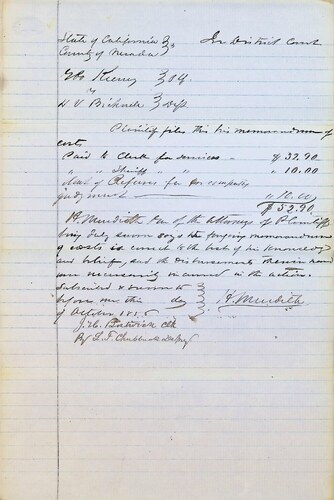 State of California } ss In District Court
County of Nevada }
Geo Keeney } Plf
vs
H. V. Bicknell } Deft
Plaintiff files this his memorandum of
costs
Paid to Clerk for services " $ 32.90
" " Sheriff " " " 10.00
Cost of Referee fee for computing
judgment " 10.00
$ 52.90
H. Meredith one of the attorneys of Plaintiff
being duly sworn says the foregoing memorandum
of costs is correct to the best of his knowledge
and belief, and the disbursements therein named
were necessarily incurred in the action.
Subscribed & sworn to
before me this day H. Meredith
of October 185
By Deputy